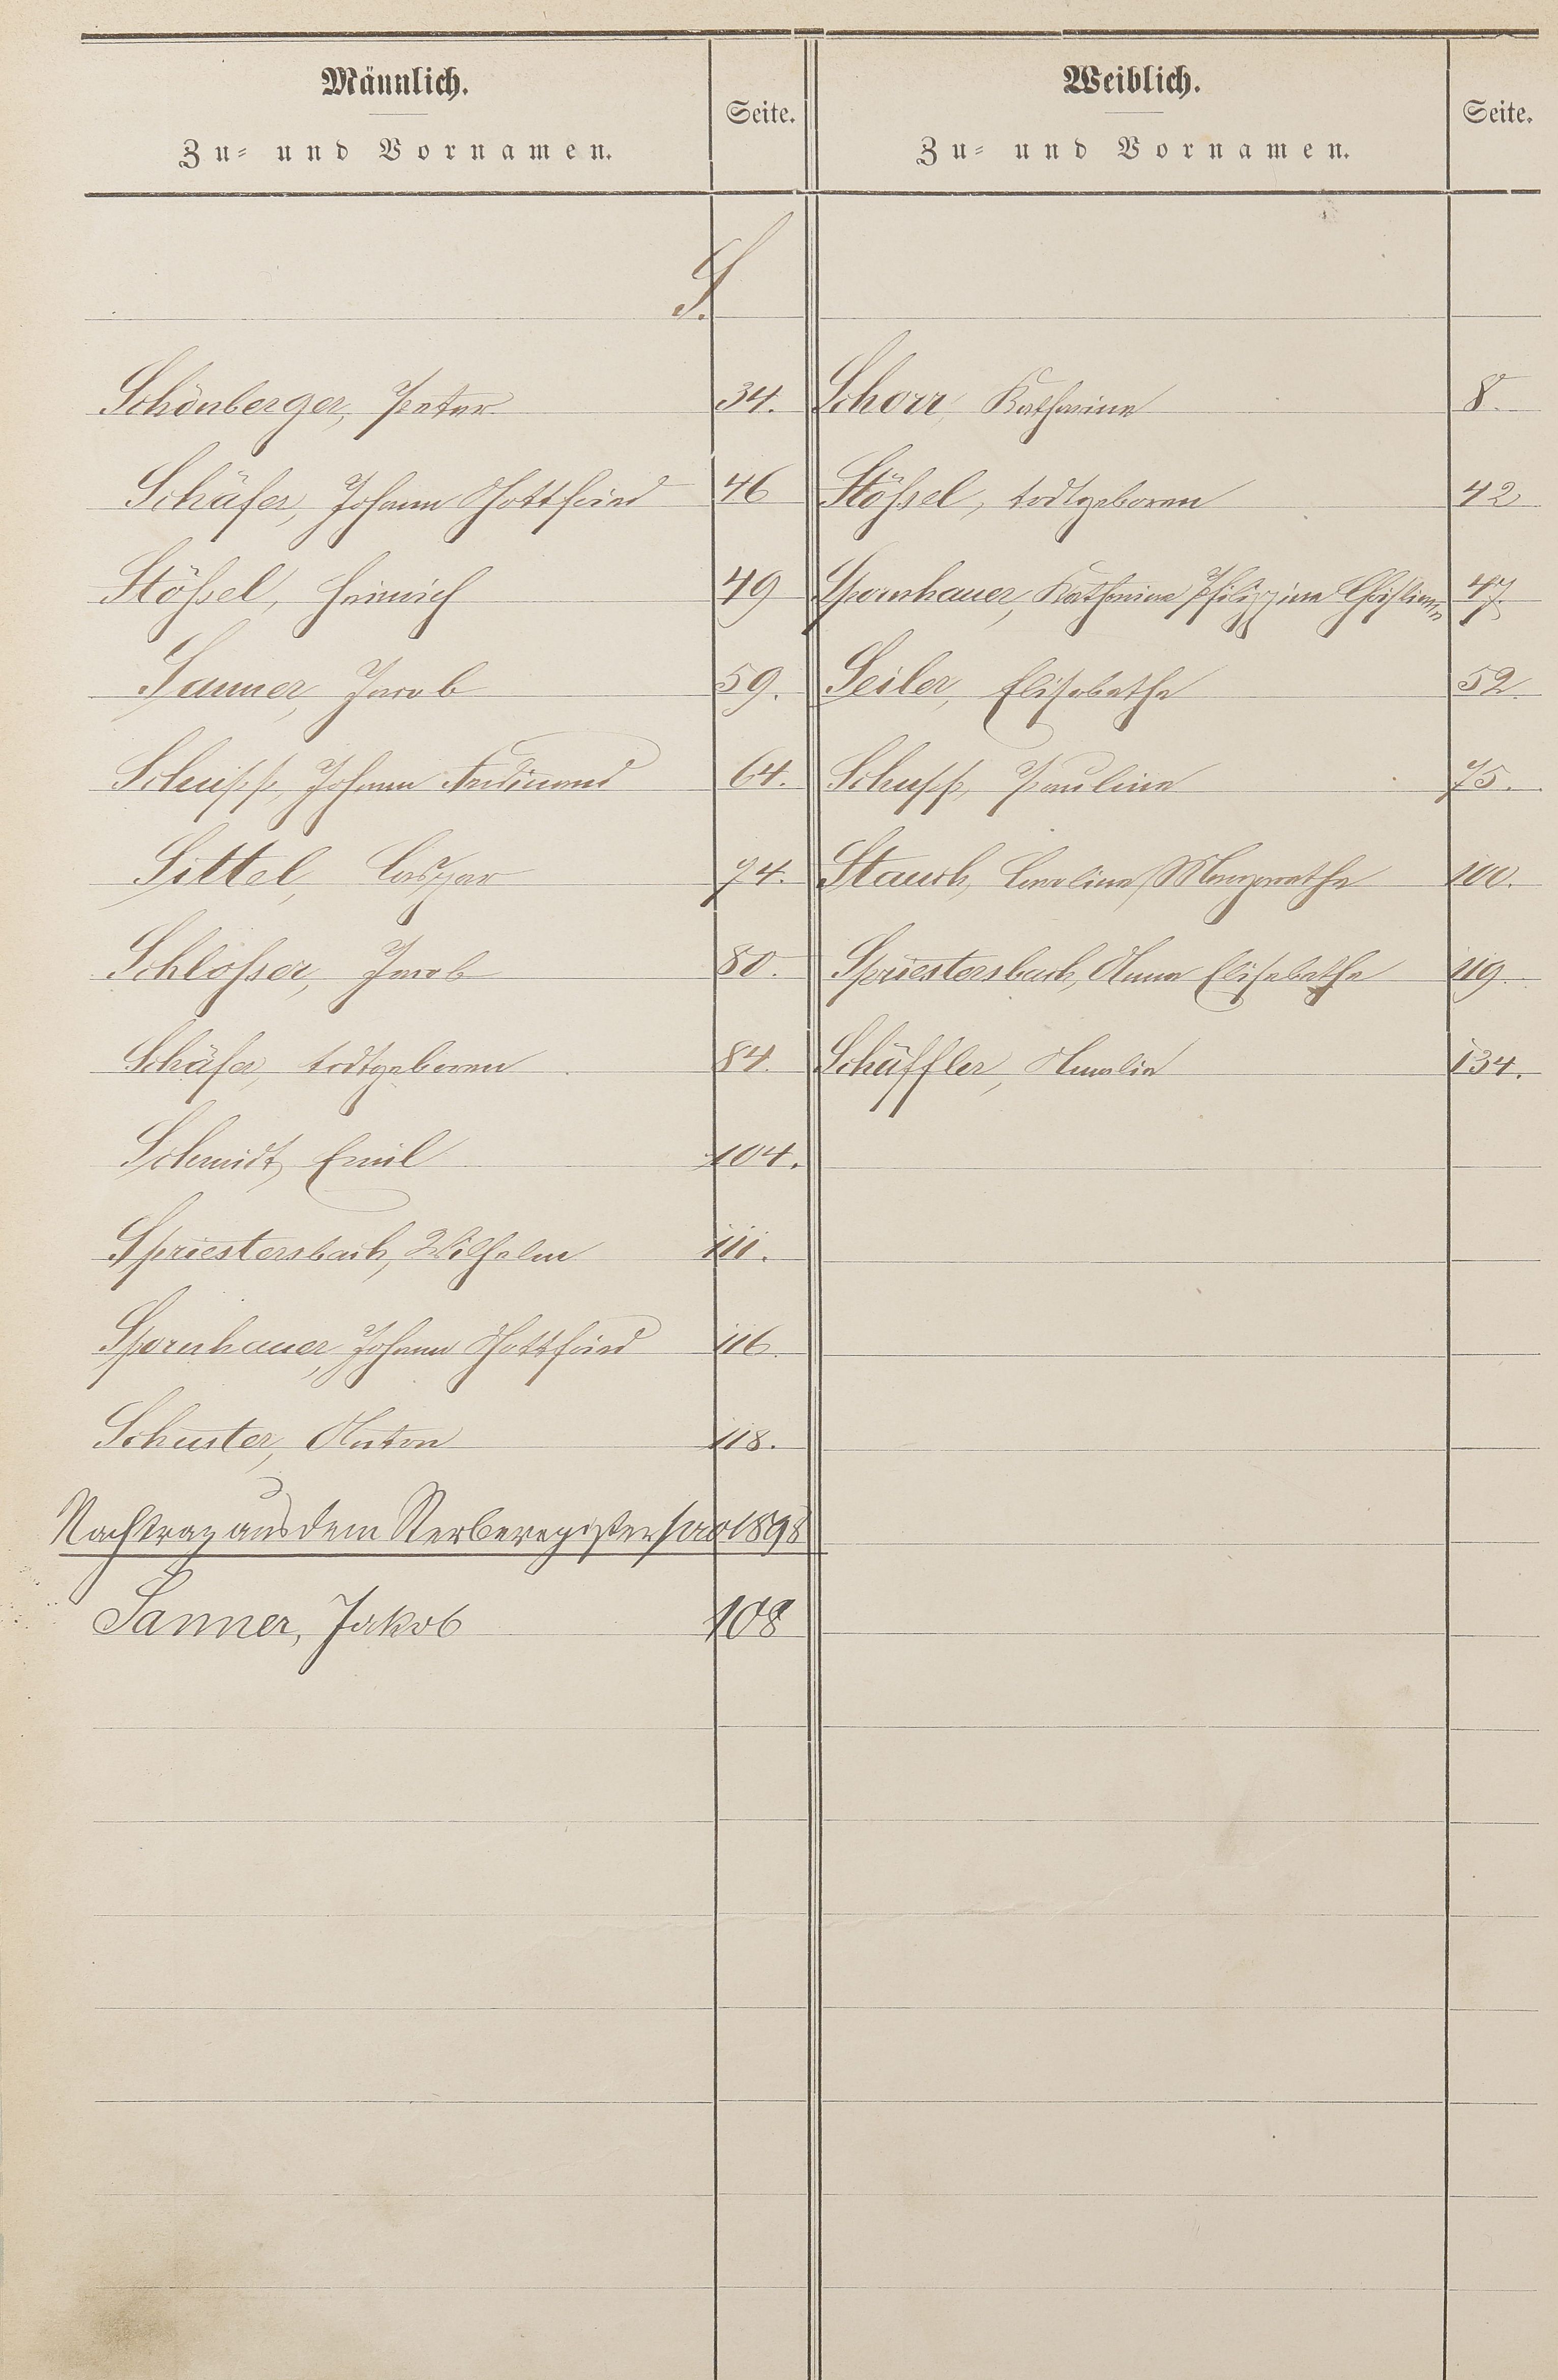 Männlich.
Zu- und Vornamen.
Seite.
Weiblich.
Zu- und Vornamen.
Seite.
S.
Schönberger, Peter 34.
Schorr, Katharine 8.
Schäfer, Johann Gottfried 46
Stößel, todtgeboren 42
Stößel, Heinrich 49
Spornhauer, Katharine Philippine Christiane 47.
Sanner, Jacob 59.
Seiler, Elisabethe 52
Schupp, Johann Ferdinand 64.
Schupp, Pauline 75.
Sittel, Caspar 74.
Stauch, Caroline Margarethe 100.
Schloßer, Jacob 80.
Spriestersbach, Anna Elisabethe 119
Schäfer, todtgeboren 84.
Schäffler, Amalie 134.
Schmidt, Emil 104.
Spriestersbach, Wilhelm 111.
Spornhauer, Johann Gottfried 116
Schuster, Anton 118.
Nachtrag aus dem Sterberegister pro 1898
Sanner, Jakob 108